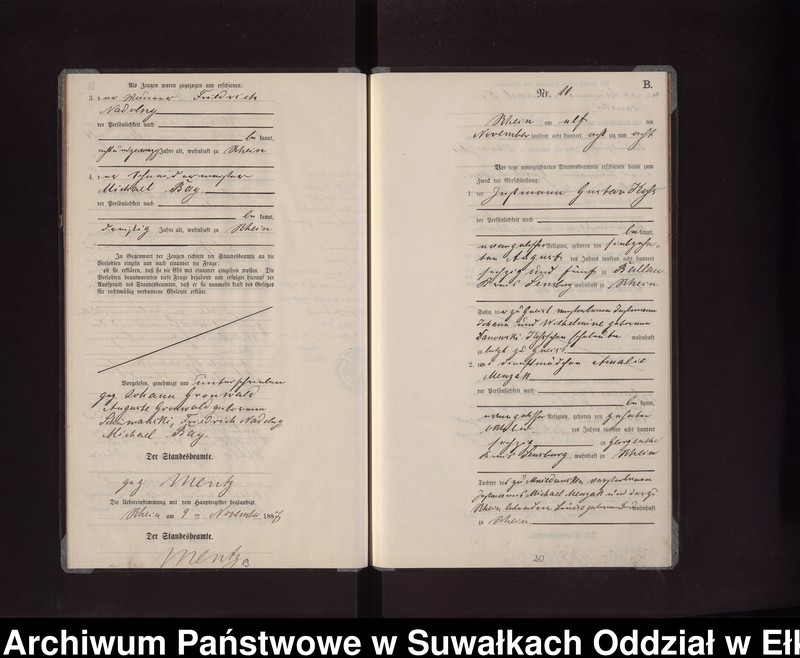 Als Zeugen waren zugezogen und erschienen:
3. der Maurer Friedrich
Nadolny
der Persönlichkeit nach
be kannt,
Jahre alt, wohnhaft zu Rhein
4. der Schneidermeister
Michael Bay
der Persönlichkeit nach
be kannt,
dreißig Jahre alt, wohnhaft zu Rhein
In Gegenwart der Zeugen richtete der Standesbeamte an die
Verlobten einzeln und nach einander die Frage:
ob sie erklären, daß sie die Ehe mit einander eingehen wollen. Die
Verlobten beantworteten diese Frage bejahend und erfolgte hierauf der
Ausspruch des Standesbeamten, daß er sie nunmehr kraft des Gesetzes
für rechtmäßig verbundene Eheleute erkläre.
Vorgelesen, genehmigt und unterschrieben
gez Johann Gronwald
Auguste Gronwald geborene
Friedrich Nadolny
Michael Bay.
Der Standesbeamte.
gez Mentz
Die Uebereinstimmung mit dem Hauptregister beglaubigt.
Rhein am 9 ten November 188
Der Standesbeamte.
Mentz
B.
Nr. 11.
Rhein am elf ten
November tausend acht hundert acht zig und acht
Vor dem unterzeichneten Standesbeamten erschienen heute zum
Zweck der Eheschließung:
1. der Instmann Gustav
der Persönlichkeit nach
be kannt,
evangelischer Religion, geboren den siebzehn-
ten August des Jahres tausend acht hundert
sechzig und fünf zu
Kreis wohnhaft zu Rhein
Sohn des zu verstorbenen Instmann
Johann und Wilhelmine geborene
Eheleute wohnhaft
zuletzt zu
2. das Dienstmädchen Amalie
Menzak
der Persönlichkeit nach
be kannt,
evangelischer Religion, geboren den zehnten
des Jahres tausend acht hundert
sechzig zu
Kreis Sensburg, wohnhaft zu Rhein
Tochter des zu verstorbenen
Instmanns Michael Menzak und der zu
Rhein lebenden Louise geborene wohnhaft
zu Rhein.
20
Archiwum Państwowe w Suwałkach Oddział w Ełk